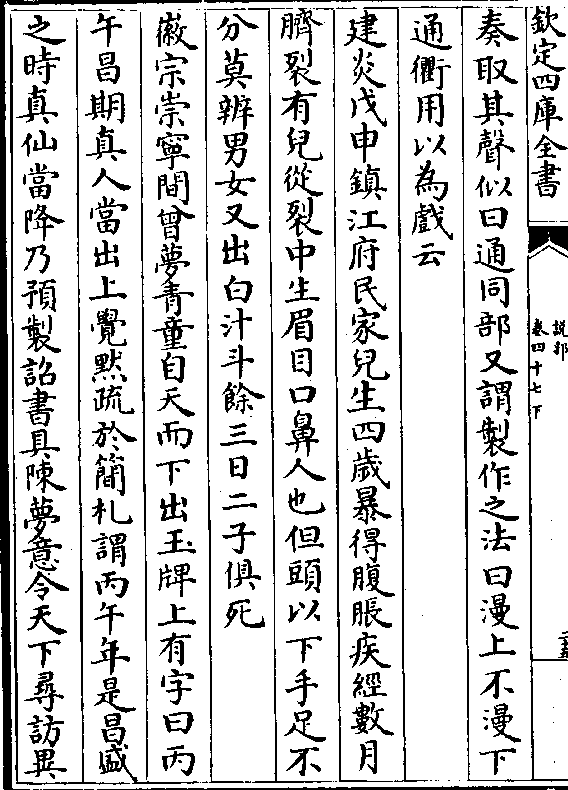 欽定四庫全書
說郛
卷四十七下
奏取其聲似曰通同部又謂製作之法曰漫上不漫下
通衢用以為戲云
建炎戊申鎮江府民家兒生四歲暴得腹脹疾經數月
臍裂有兒從裂中生眉目口鼻人也但頭以下手足不
分莫辨男女又出白汁斗餘三日二子俱死
徽宗崇寧間曾夢青童自天而下出玉牌上有字曰丙
午昌期真人當出上覺黙疏於簡札謂丙午年是昌盛
之時真仙當降乃預製詔書具陳夢意令天下尋訪異